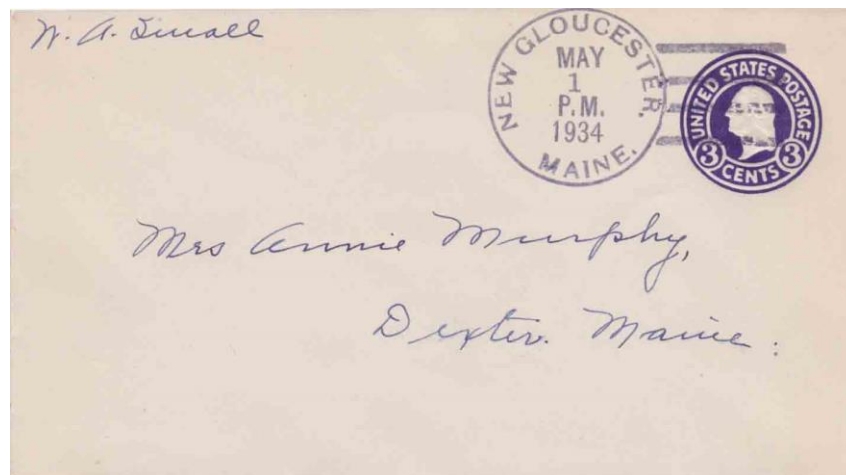 W. A. Small
NEW GLOUCESTER.
MAY
1
P.M.
1934
MAINE.
UNITED STATES POSTAGE
3 CENTS 3
Mrs Annie Murphy,
Dexter. Maine.